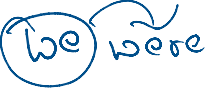 we were